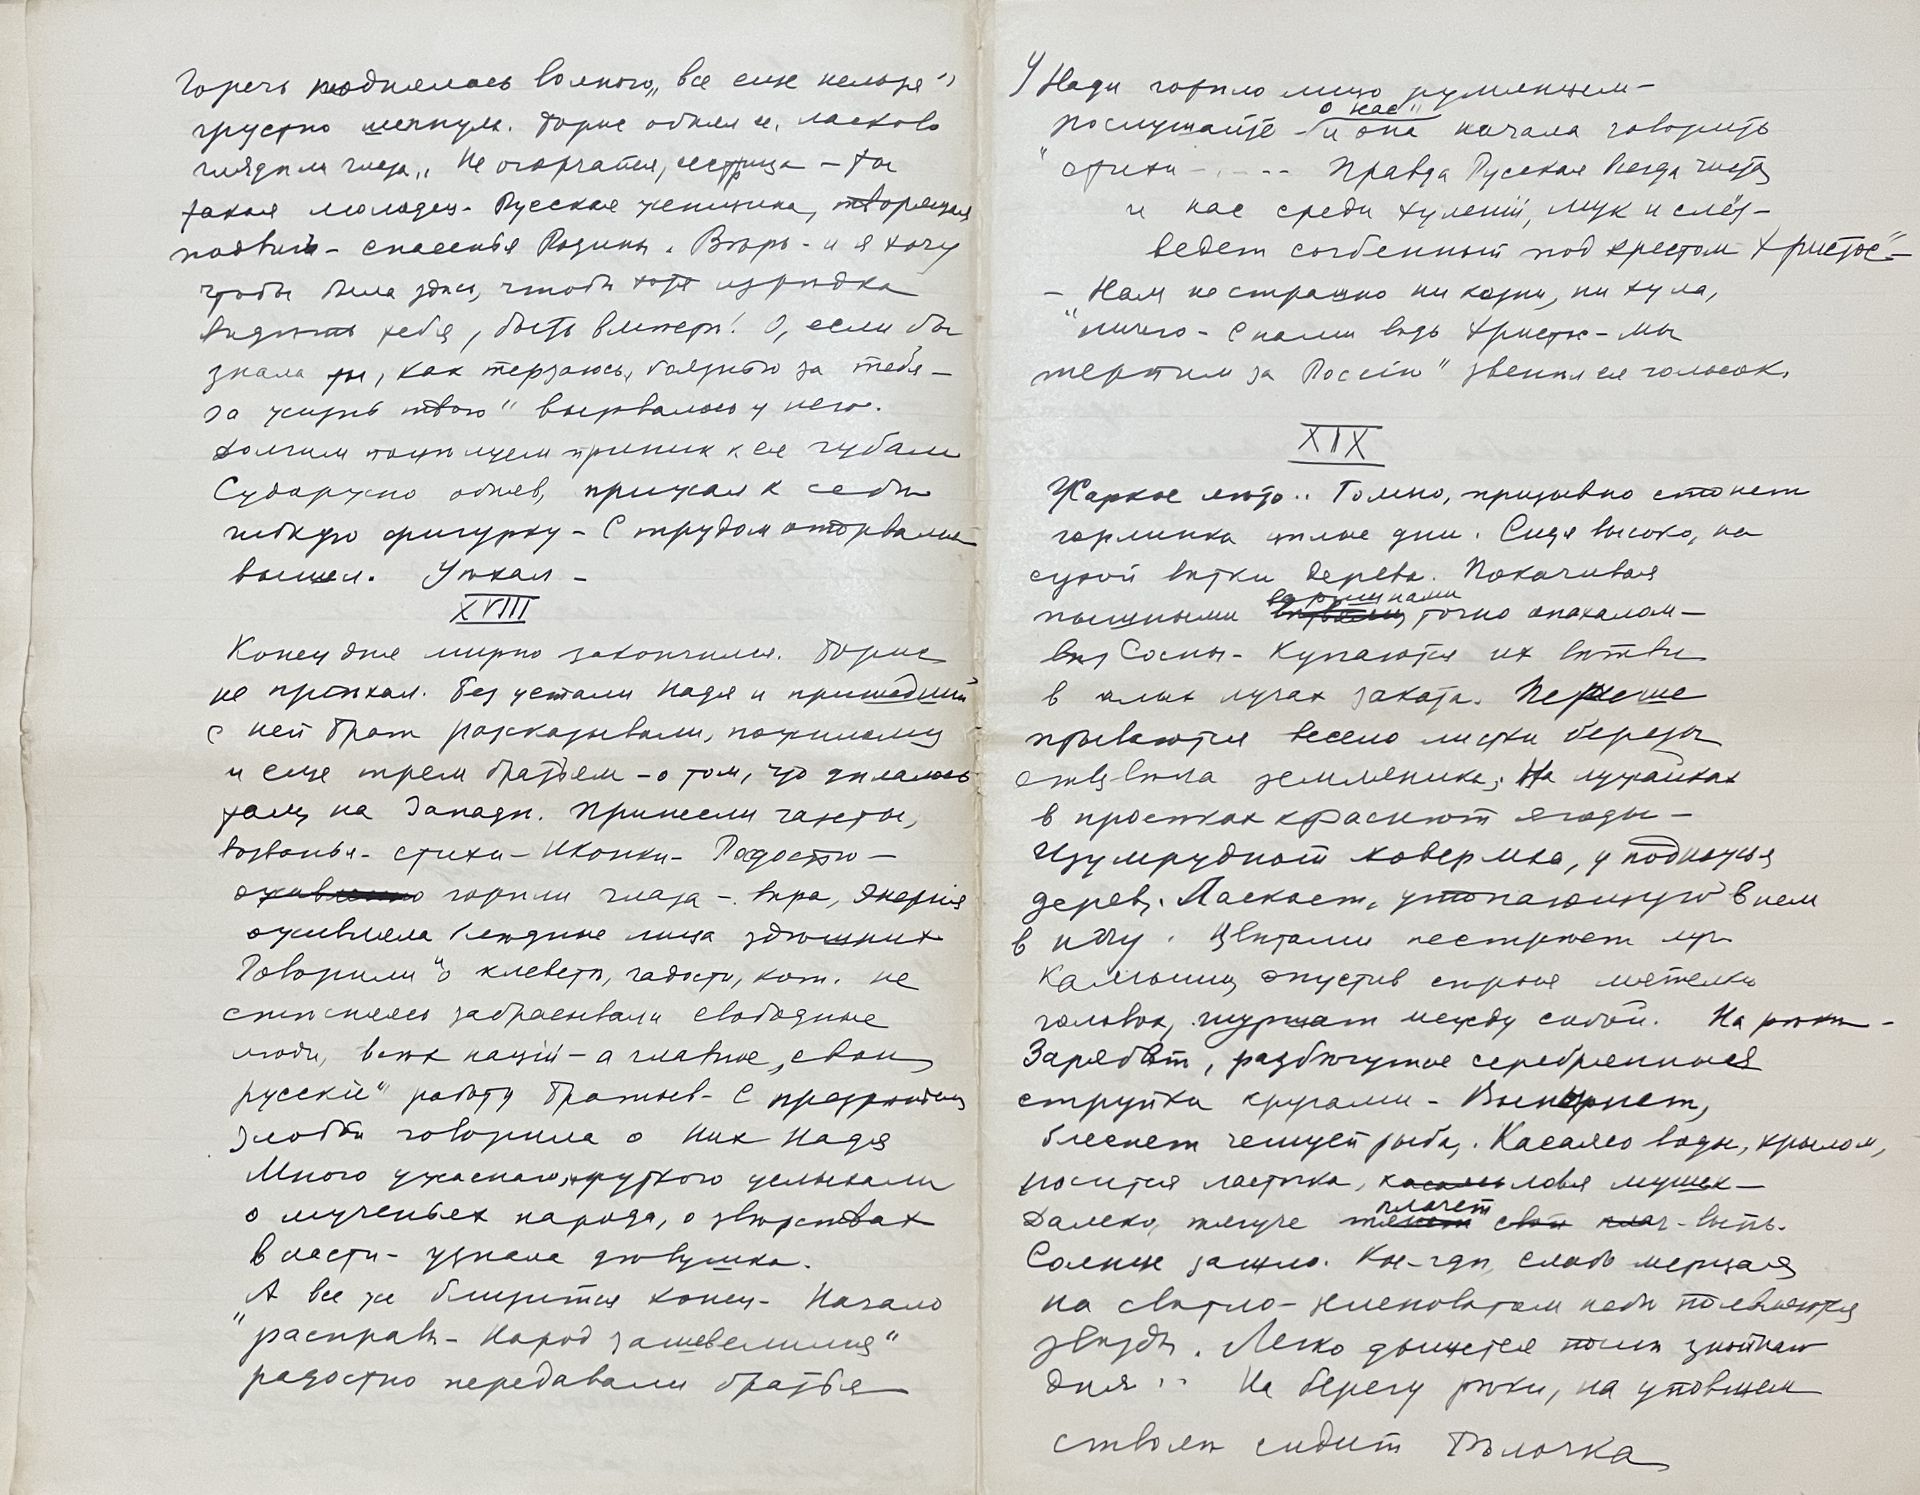 Горечь поднялась волною „все еще нельзя"
грустно шепнула. Борис обнял ее, ласково
глядя в глаза „Не огорчайся, сестрица – ты
такая молодец – Русская женщина, творящая
подвиг – спасенья Родины. Вѣрь – и я хочу
чтобы была здѣсь, чтобы хотя изрѣдка
видѣть тебя, быть вмѣстѣ! О, если бы
знала ты, как терзаюсь, боязнью за тебя –
за жизнь твою" вырвалось у него.
Долгим поцѣлуем приник к ея губам
Судорожно обняв, прижал к себѣ
гибкую фигурку – С трудом оторвался
вышел. Уѣхал –
XVIII
Конец дня мирно закончился. Борис
не проѣхал. Без устали Надя и пришедшій
с ней брат разсказывали, пожилому
и еще трем братьям – о том, что дѣлалось
там, на Западѣ. Принесли газеты,
воззванья – стихи – Иконки – Радостью –
горѣли глаза –. вѣра, энергія
оживляла блѣдные лица здѣшних
Говорили о клеветѣ, гадости, кот. не
стѣсняясь забрасывали свободные
люди, всѣх націй – а главное „свои
русскіе" работу братьев – С презрѣніем
злобой говорила о них Надя
Много ужаснаго, жуткого услыхали
о мученьях народа, о звѣрствах
власти – узнала дѣвушка.
"А все же близится конец – Начало
"расправы – Народ зашевелился"
радостно передавали братья
У Нади горѣло лицо румянцем –
о нас"
послушайте – и она начала говорить
"стихи – . – – . Правда Русская всегда чиста
и нас среди хулений, мук и слёз –
ведет согбенный под крестом Христос" –
– Нам не страшно ни козни, ни хула,
"ничего – С нами вѣдь Христос – мы
терпим за Россію" звенѣл ея голосок.
XIX
Жаркое лѣто.. Томно, призывно стонет
горлинка теплые дни. Сидя высоко, на
сухой вѣтки дерева. Покачивая
вершинами
пышными точно опахалом –
Сосны – Купаются их вѣтви
в алых лучах заката. Переше
птываются весело листки березы
отцвѣла земляника, На лужайках
в просѣках краснѣют ягоды –
Изумрудной ковер мха, у подножья
дерев. Ласкает, утопающую в нем
в ногу. Цвѣтами пестрѣет луг
Камыши, опустив сѣрые метелки
головок, шуршат между собой. На рѣкѣ –
Зарябят, разбѣгутся серебренные
струйки кругами – Вынырнет,
блеснет чешуей рыба,. Касаясь воды, крылом,
носится ласточка, ловя мушек –
плачет
Далеко, тягуче выпь.
Солнце зашло. Кое-гдѣ, слабо мерцая
на свѣтло-зеленоватом небѣ появляются
звѣзды. Легко дышется послѣ знойнаго
дня.. На берегу рѣки, на упавшем
стволѣ сидит Бѣлочка